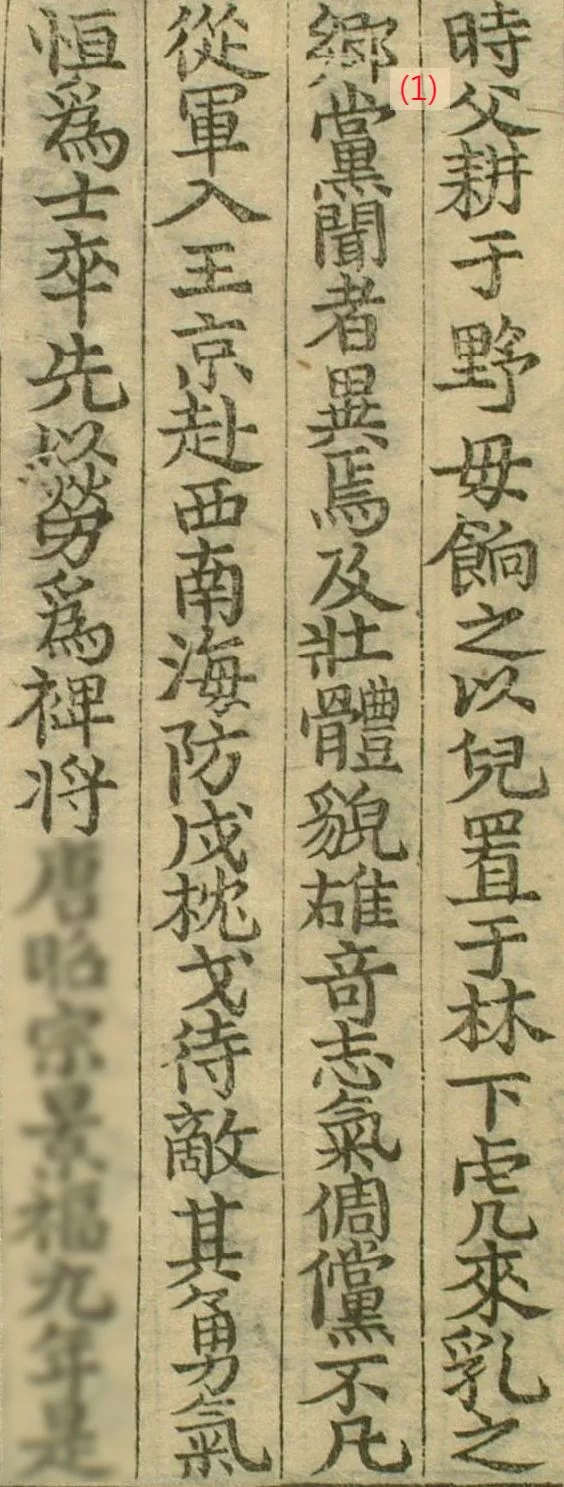 時父耕于野母餉之以兒置于林下虎來乳之
鄕黨聞者異焉及壯體貌雄奇志氣倜儻不凡
從軍入王京赴西南海防戍枕戈待敵其勇氣
恒爲士卒先以勞爲裨将
(1)